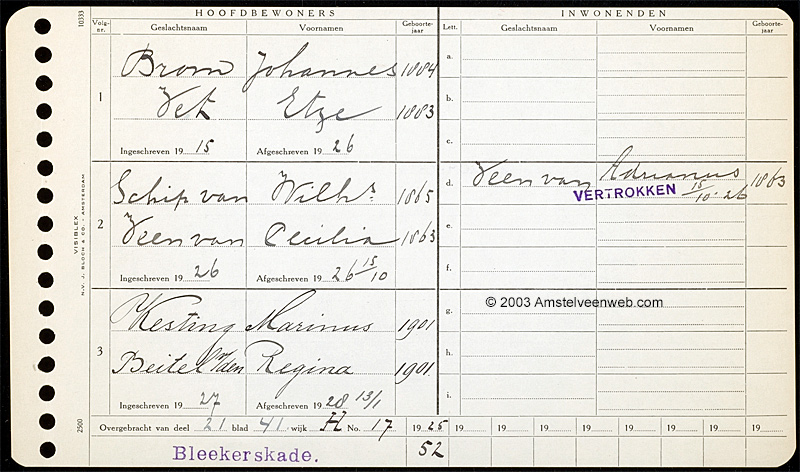 HOOFDBEWONERS INWONENDEN
10333 Volg-nr. Geslachtsnaam Voornamen Geboorte-jaar Lett. Geslachtsnaam Voornamen Geboorte-jaar
1
Brom Johannes 1884
Vet Etze 1883
Ingeschreven 1915 Afgeschreven 1926
a.
b.
c.
2
Schip van Wilh. 1865
Veen van Cecilia 1863
Ingeschreven 1926 Afgeschreven 1926 15/10
d. Veen van Adrianus 1863
VERTROKKEN 15/10-26
e.
f.
3
Kesting Marinus 1901
Beitel v/den Regina 1901
Ingeschreven 1927 Afgeschreven 1928 13/1
g.
© 2003 Amstelveenweb.com
h.
i.
VISIBLEX
N.V. J. BLOCH & CO. - AMSTERDAM
2500
Overgebracht van deel 21 blad 41 wijk H No. 17 1925 19 19 19 19 19 19 19 19
Bleekerskade. 52